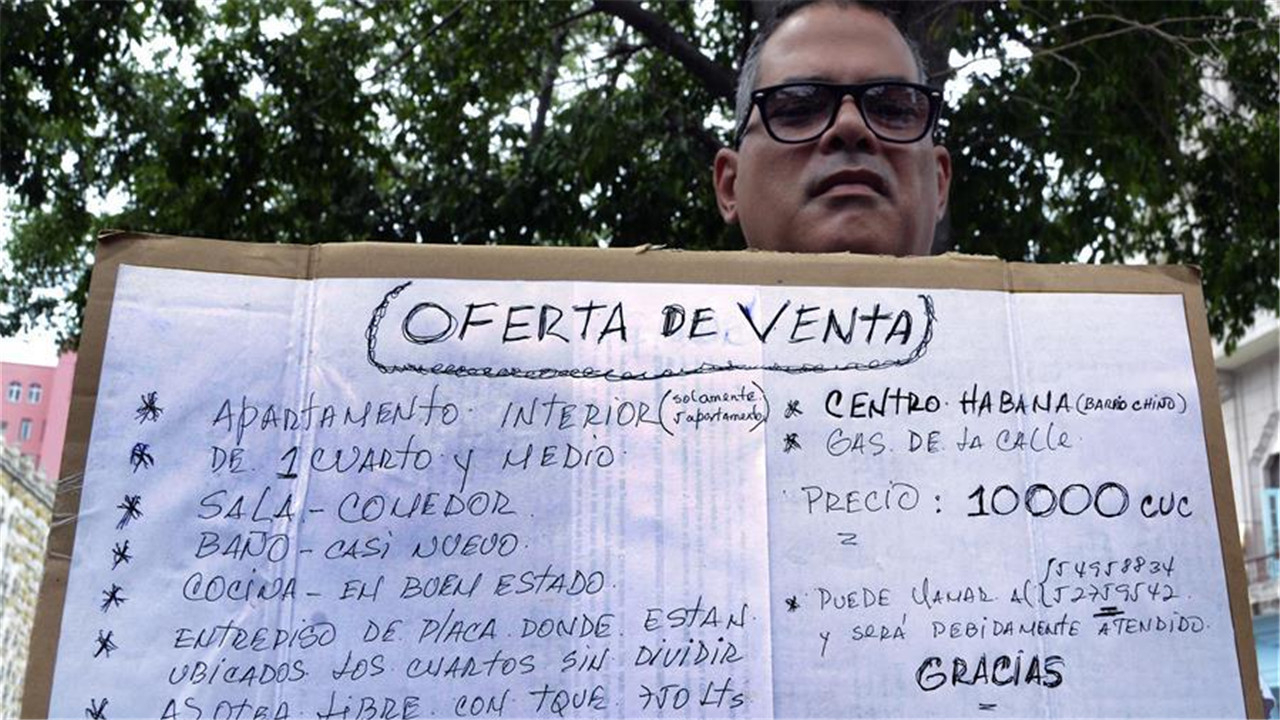 (OFERTA DE VENTA)
* APARTAMENTO INTERIOR (solamente 5 apartamento)
* DE 1 CUARTO Y MEDIO.
* SALA - COMEDOR.
* BAÑO - CASI NUEVO.
* COCINA - EN BUEN ESTADO.
* ENTREPISO DE PLACA DONDE ESTAN
UBICADOS LOS CUARTOS SIN DIVIDIR
* ASOTEA LIBRE CON TQUE 750 Lts
* CENTRO HABANA (BARRIO CHINO)
* GAS DE LA CALLE.
PRECIO: 10000 CUC
* PUEDE LLAMAR AL 54958834
52759542
Y SERÁ DEBIDAMENTE ATENDIDO.
GRACIAS